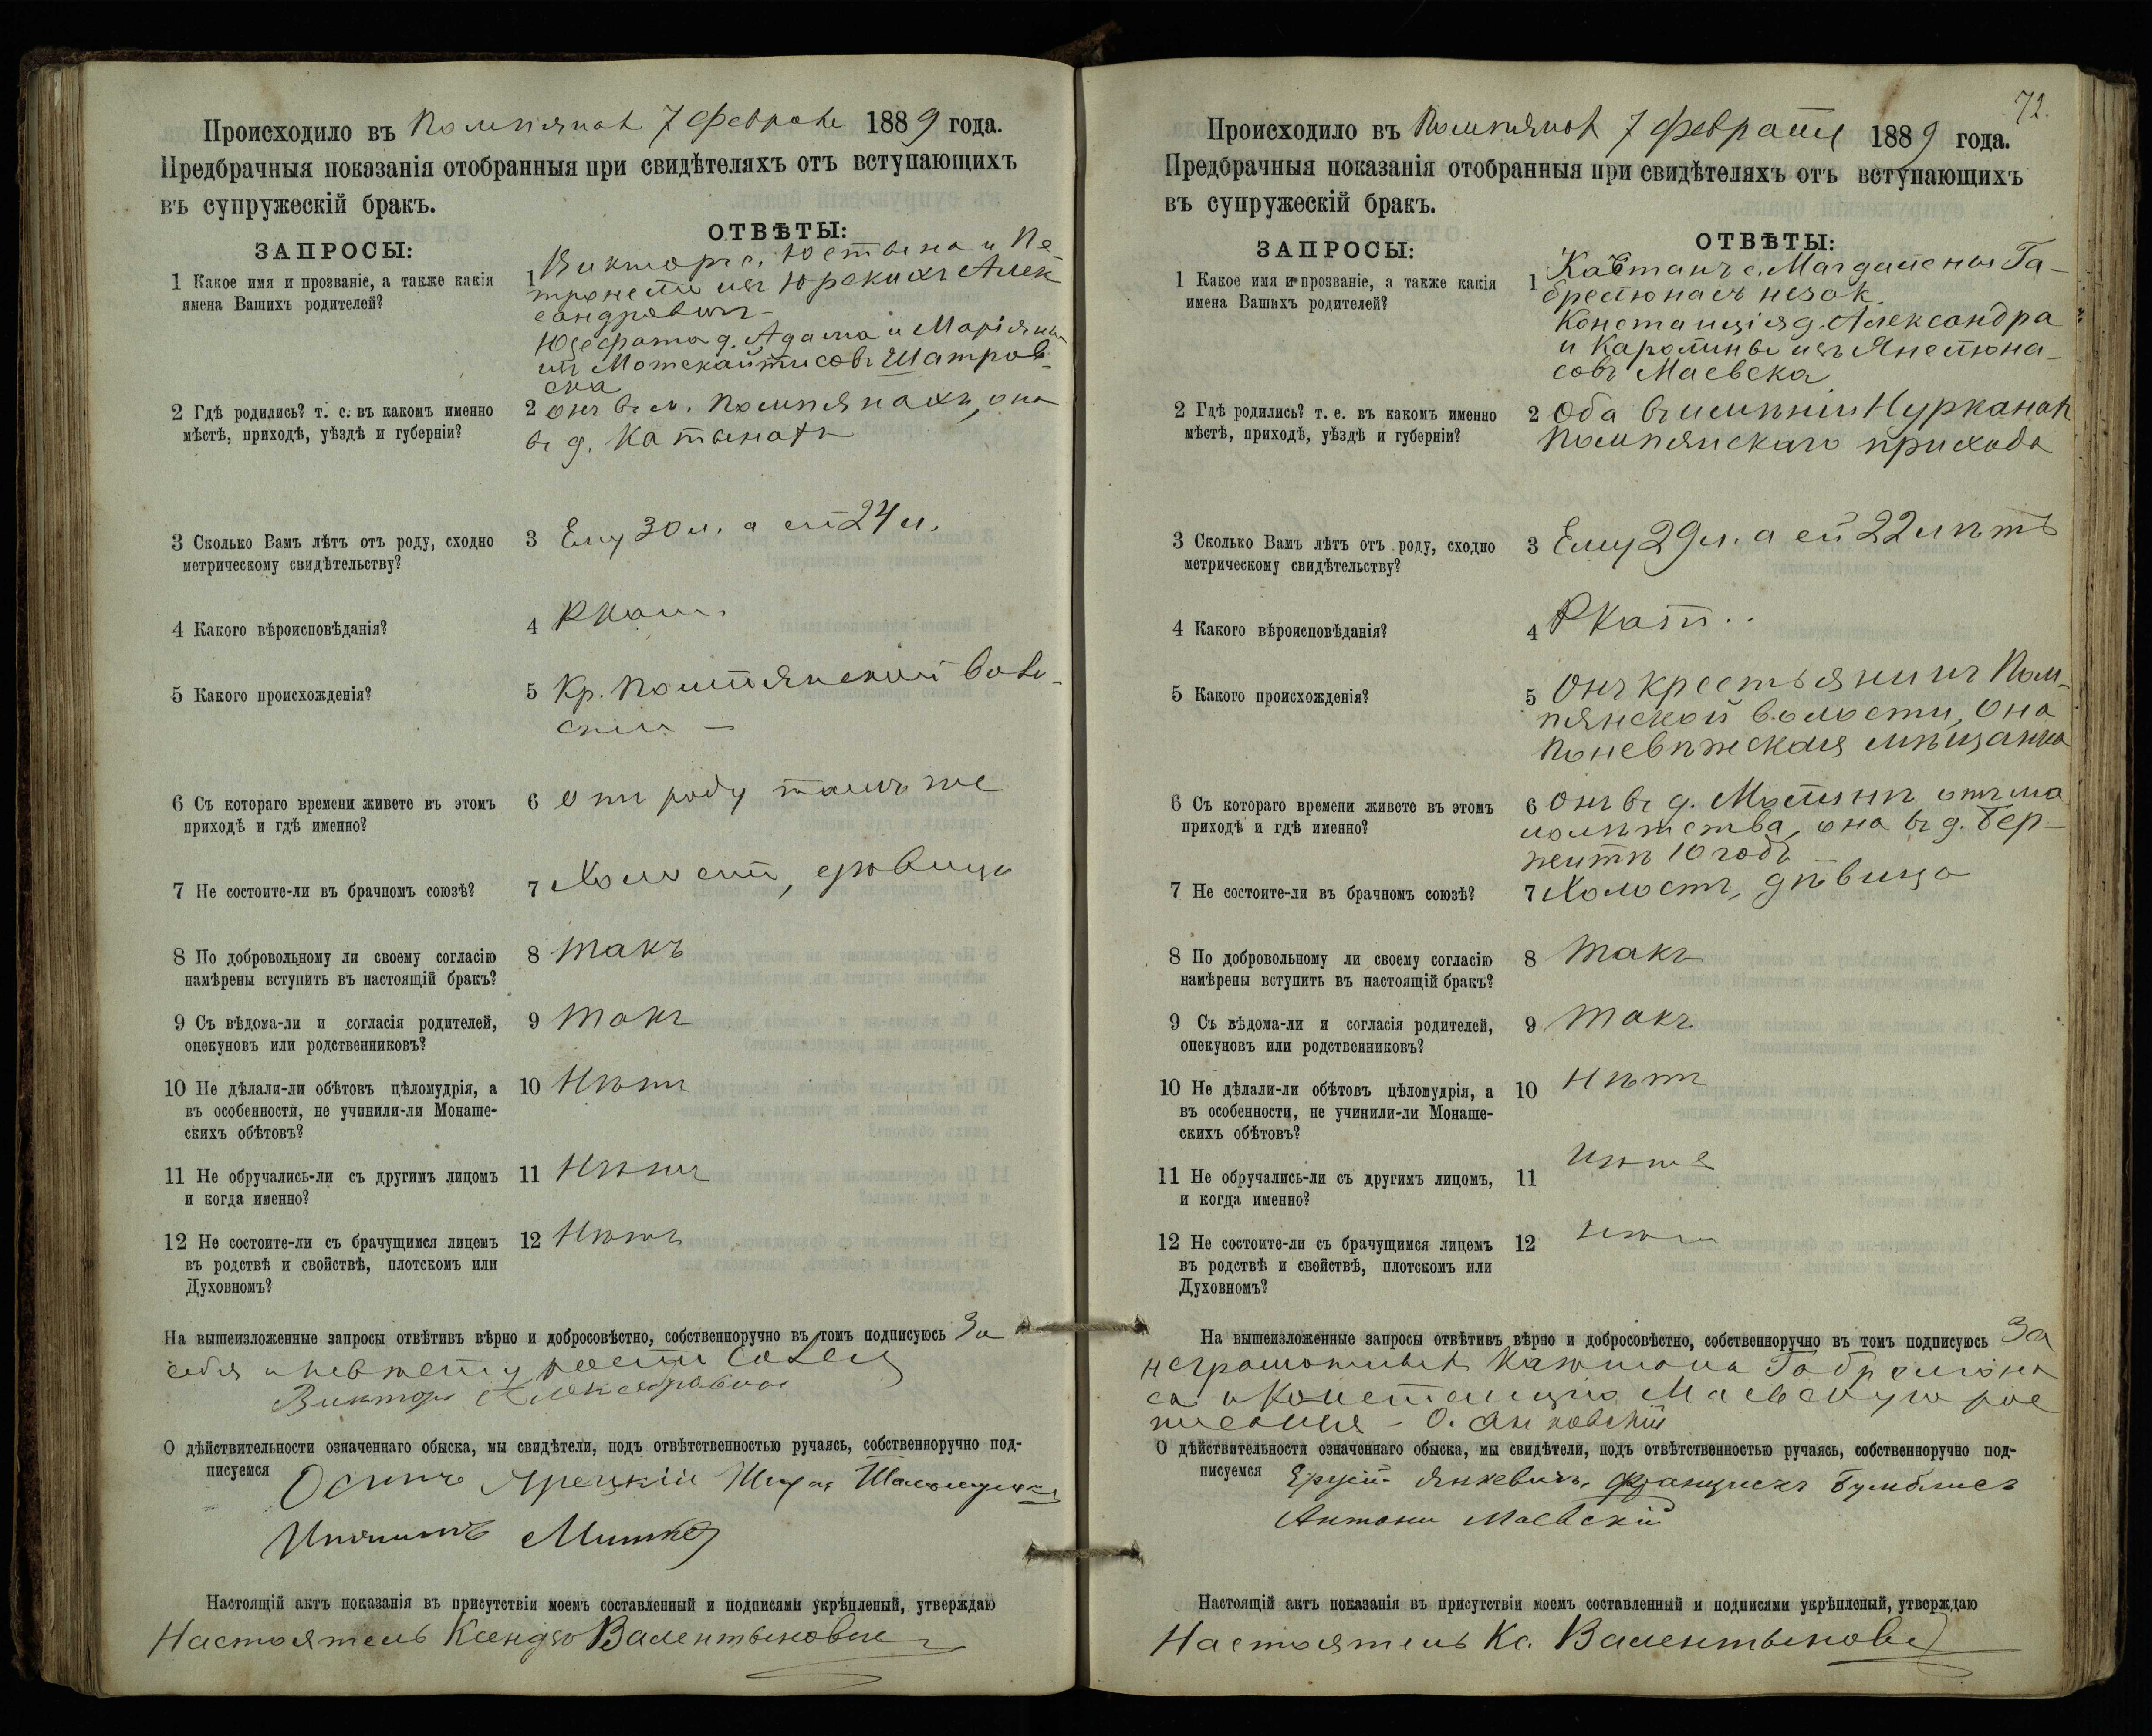 Происходило въ Помпянахъ 7 февраля 1889 года.
Предбрачныя показанія отобранныя при свидѣтеляхъ отъ вступающихъ
въ супружескій бракъ.
ЗАПРОСЫ:
ОТВѢТЫ:
1 Какое имя и прозваніе, а также какія
имена Вашихъ родителей?
1 Викторъ с. Юстына и Пе-
тронели изъ Юрекихъ Алек
сандровичъ
Юзефата д. Адама и Маріяны
изъ Моткайтисовъ Шатров-
ска
2 Гдѣ родились? т. е. въ какомъ именно
мѣстѣ, приходѣ, уѣздѣ и губерніи?
2 онъ въ м. Помпянахъ, она
въ д. Катынахъ
3 Сколько Вамъ лѣтъ отъ роду, сходно
метрическому свидѣтельству?
3 Ему 30 л. а ей 24 л.
4 Какого вѣроисповѣданія?
4 Р Кат.
5 Какого происхожденія?
5 Кр. Помпянской воло-
сти —
6 Съ котораго времени живете въ этомъ
приходѣ и гдѣ именно?
6 отъ роду тамъ же
7 Не состоите-ли въ брачномъ союзѣ?
7 Холостъ, дѣвица
8 По добровольному ли своему согласію
намѣрены вступить въ настоящій бракъ?
8 Такъ
9 Съ вѣдома-ли и согласія родителей,
опекуновъ или родственниковъ?
9 Такъ
10 Не дѣлали-ли обѣтовъ цѣломудрія, а
въ особенности, не учинили-ли Монаше-
скихъ обѣтовъ?
10 Нѣтъ
11 Не обручались-ли съ другимъ лицомъ
и когда именно?
11 Нѣтъ
12 Не состоите-ли съ брачущимся лицемъ
въ родствѣ и свойствѣ, плотскомъ или
Духовномъ?
12 Нѣтъ
На вышеизложенные запросы отвѣтивъ вѣрно и добросовѣстно, собственноручно въ томъ подписуюсь За
себя и невѣсту
Викторъ Александровичъ
О дѣйствительности означеннаго обыска, мы свидѣтели, подъ отвѣтственностью ручаясь, собственноручно под-
писуемся Осипъ Ярецкій
Настоящій актъ показанія въ присутствіи моемъ составленный и подписями укрѣпленый, утверждаю
Настоятель Ксендзъ Валентыновичъ
72.
Происходило въ Помпянахъ 7 февраля 1889 года.
Предбрачныя показанія отобранныя при свидѣтеляхъ отъ вступающихъ
въ супружескій бракъ.
ЗАПРОСЫ:
ОТВѢТЫ:
1 Какое имя и прозваніе, а также какія
имена Вашихъ родителей?
1 Каэтанъ с. Магдалены Га-
брелюнасъ незак.
Констанція д. Александра
и Каролины изъ Янелюна-
совъ Маевска
2 Гдѣ родились? т. е. въ какомъ именно
мѣстѣ, приходѣ, уѣздѣ и губерніи?
2 Оба въ имѣніи Нурканахъ
Помпянскаго прихода
3 Сколько Вамъ лѣтъ отъ роду, сходно
метрическому свидѣтельству?
3 Ему 29 л. а ей 22 лѣтъ
4 Какого вѣроисповѣданія?
4 Р Кат..
5 Какого происхожденія?
5 Онъ крестьянинъ Пом-
пянской волости, она
Поневѣжская мѣщанка
6 Съ котораго времени живете въ этомъ
приходѣ и гдѣ именно?
6 онъ въ д. отъ ма
лолѣтства, она въ д. Бер-
10 годъ
7 Не состоите-ли въ брачномъ союзѣ?
7 Холостъ, дѣвица
8 По добровольному ли своему согласію
намѣрены вступить въ настоящій бракъ?
8 Такъ
9 Съ вѣдома-ли и согласія родителей,
опекуновъ или родственниковъ?
9 Такъ
10 Не дѣлали-ли обѣтовъ цѣломудрія, а
въ особенности, не учинили-ли Монаше-
скихъ обѣтовъ?
10 Нѣтъ
11 Не обручались-ли съ другимъ лицомъ,
и когда именно?
11 Нѣтъ
12 Не состоите-ли съ брачущимся лицемъ
въ родствѣ и свойствѣ, плотскомъ или
Духовномъ?
12 Нѣтъ
На вышеизложенные запросы отвѣтивъ вѣрно и добросовѣстно, собственноручно въ томъ подписуюсь За
неграмотныхъ Каэтана Габрелюна
са и Констанцію Маевскую рос
писался - О. Янковскій
О дѣйствительности означеннаго обыска, мы свидѣтели, подъ отвѣтственностью ручаясь, собственноручно под-
писуемся Янкевичъ, Францискъ Бумблисъ
Антони Маевскій
Настоящій актъ показанія въ присутствіи моемъ составленный и подписями укрѣпленый, утверждаю
Настоятель Кс. Валентыновичъ